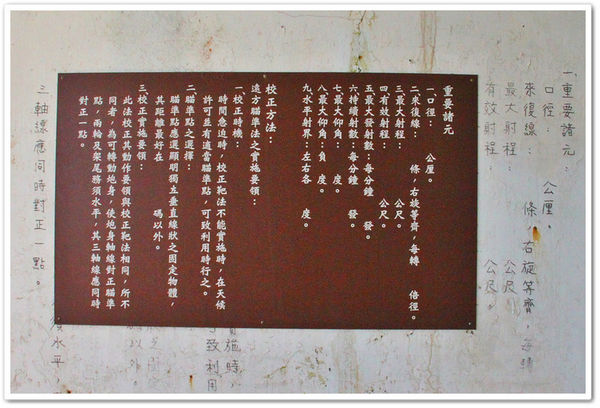 一、重要諸元：
口徑：　公厘。
來復線：　條，右旋等齊，每轉
最大射程：　公尺
有效射程：　公尺。
重要諸元
一、口徑：　公厘。
二、來復線：　條，右旋等齊，每轉　倍徑。
三、最大射程：　公尺。
四、有效射程：　公尺。
五、最大發射數：每分鐘　發。
六、持續射數：每分鐘　發。
七、最大仰角：　度。
八、最大俯角：負　度。
九、水平射界：左右各　度。
校正方法：
遠方瞄準法之實施要領：
一、校正時機：
時間急迫時，校正靶法不能實施時，在天候
許可且有適當瞄準點，可致利用時行之。
二、瞄準點之選擇：
瞄準點應選顯明獨立垂直線狀之固定物體，
其距離最好在　碼以外。
三、校正實施要領：
此法校正其動作要領與校正靶法相同，所不
同者，為可轉動炮身，使炮身軸線對正瞄準
點，兩輪及架尾務須水平，其三軸線應同時
對正一點。
施時，
致利用
以外。
須水平
三軸線應同時對正一點。